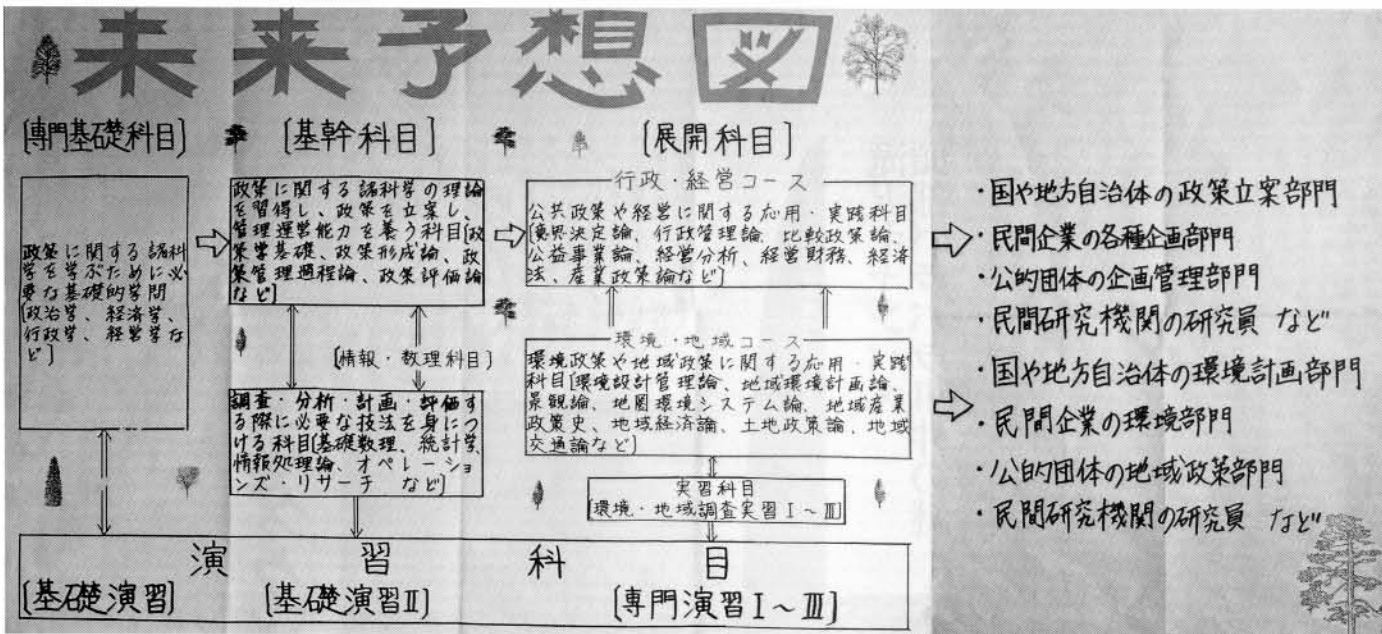 未来予想図
[専門基礎科目]
[基幹科目]
[展開科目]
政策に関する諸科
学を学ぶために必
要な基礎的学問
[政治学、経済学、
行政学、経営学な
ど]
政策に関する諸科学の理論
を習得し、政策を立案し、
管理運営能力を養う科目[政
策学基礎、政策形成論、政
策管理過程論、政策評価論
など]
[情報・数理科目]
調査・分析・計画・評価す
る際に必要な技法を身につ
ける科目[基礎数理、統計学、
情報処理論、オペレーショ
ンズ・リサーチ など]
行政・経営コース
公共政策や経営に関する応用・実践科目
決定論、行政管理論、比較政策論、
公益事業論、経営分析、経営財務、経済
法、産業政策論など]
環境・地域コース
環境政策や地域政策に関する応用・実践
科目[環境設計管理論、地域環境計画論、
景観論、地圏環境システム論、地域産業
政策史、地域経済論、土地政策論、地域
交通論など]
実習科目
[環境・地域調査実習Ⅰ~Ⅲ]
・国や地方自治体の政策立案部門
・民間企業の各種企画部門
・公的団体の企画管理部門
・民間研究機関の研究員 など
・国や地方自治体の環境計画部門
・民間企業の環境部門
・公的団体の地域政策部門
・民間研究機関の研究員 など
演習科目
[基礎演習]
[基礎演習Ⅱ]
[専門演習Ⅰ~Ⅲ]